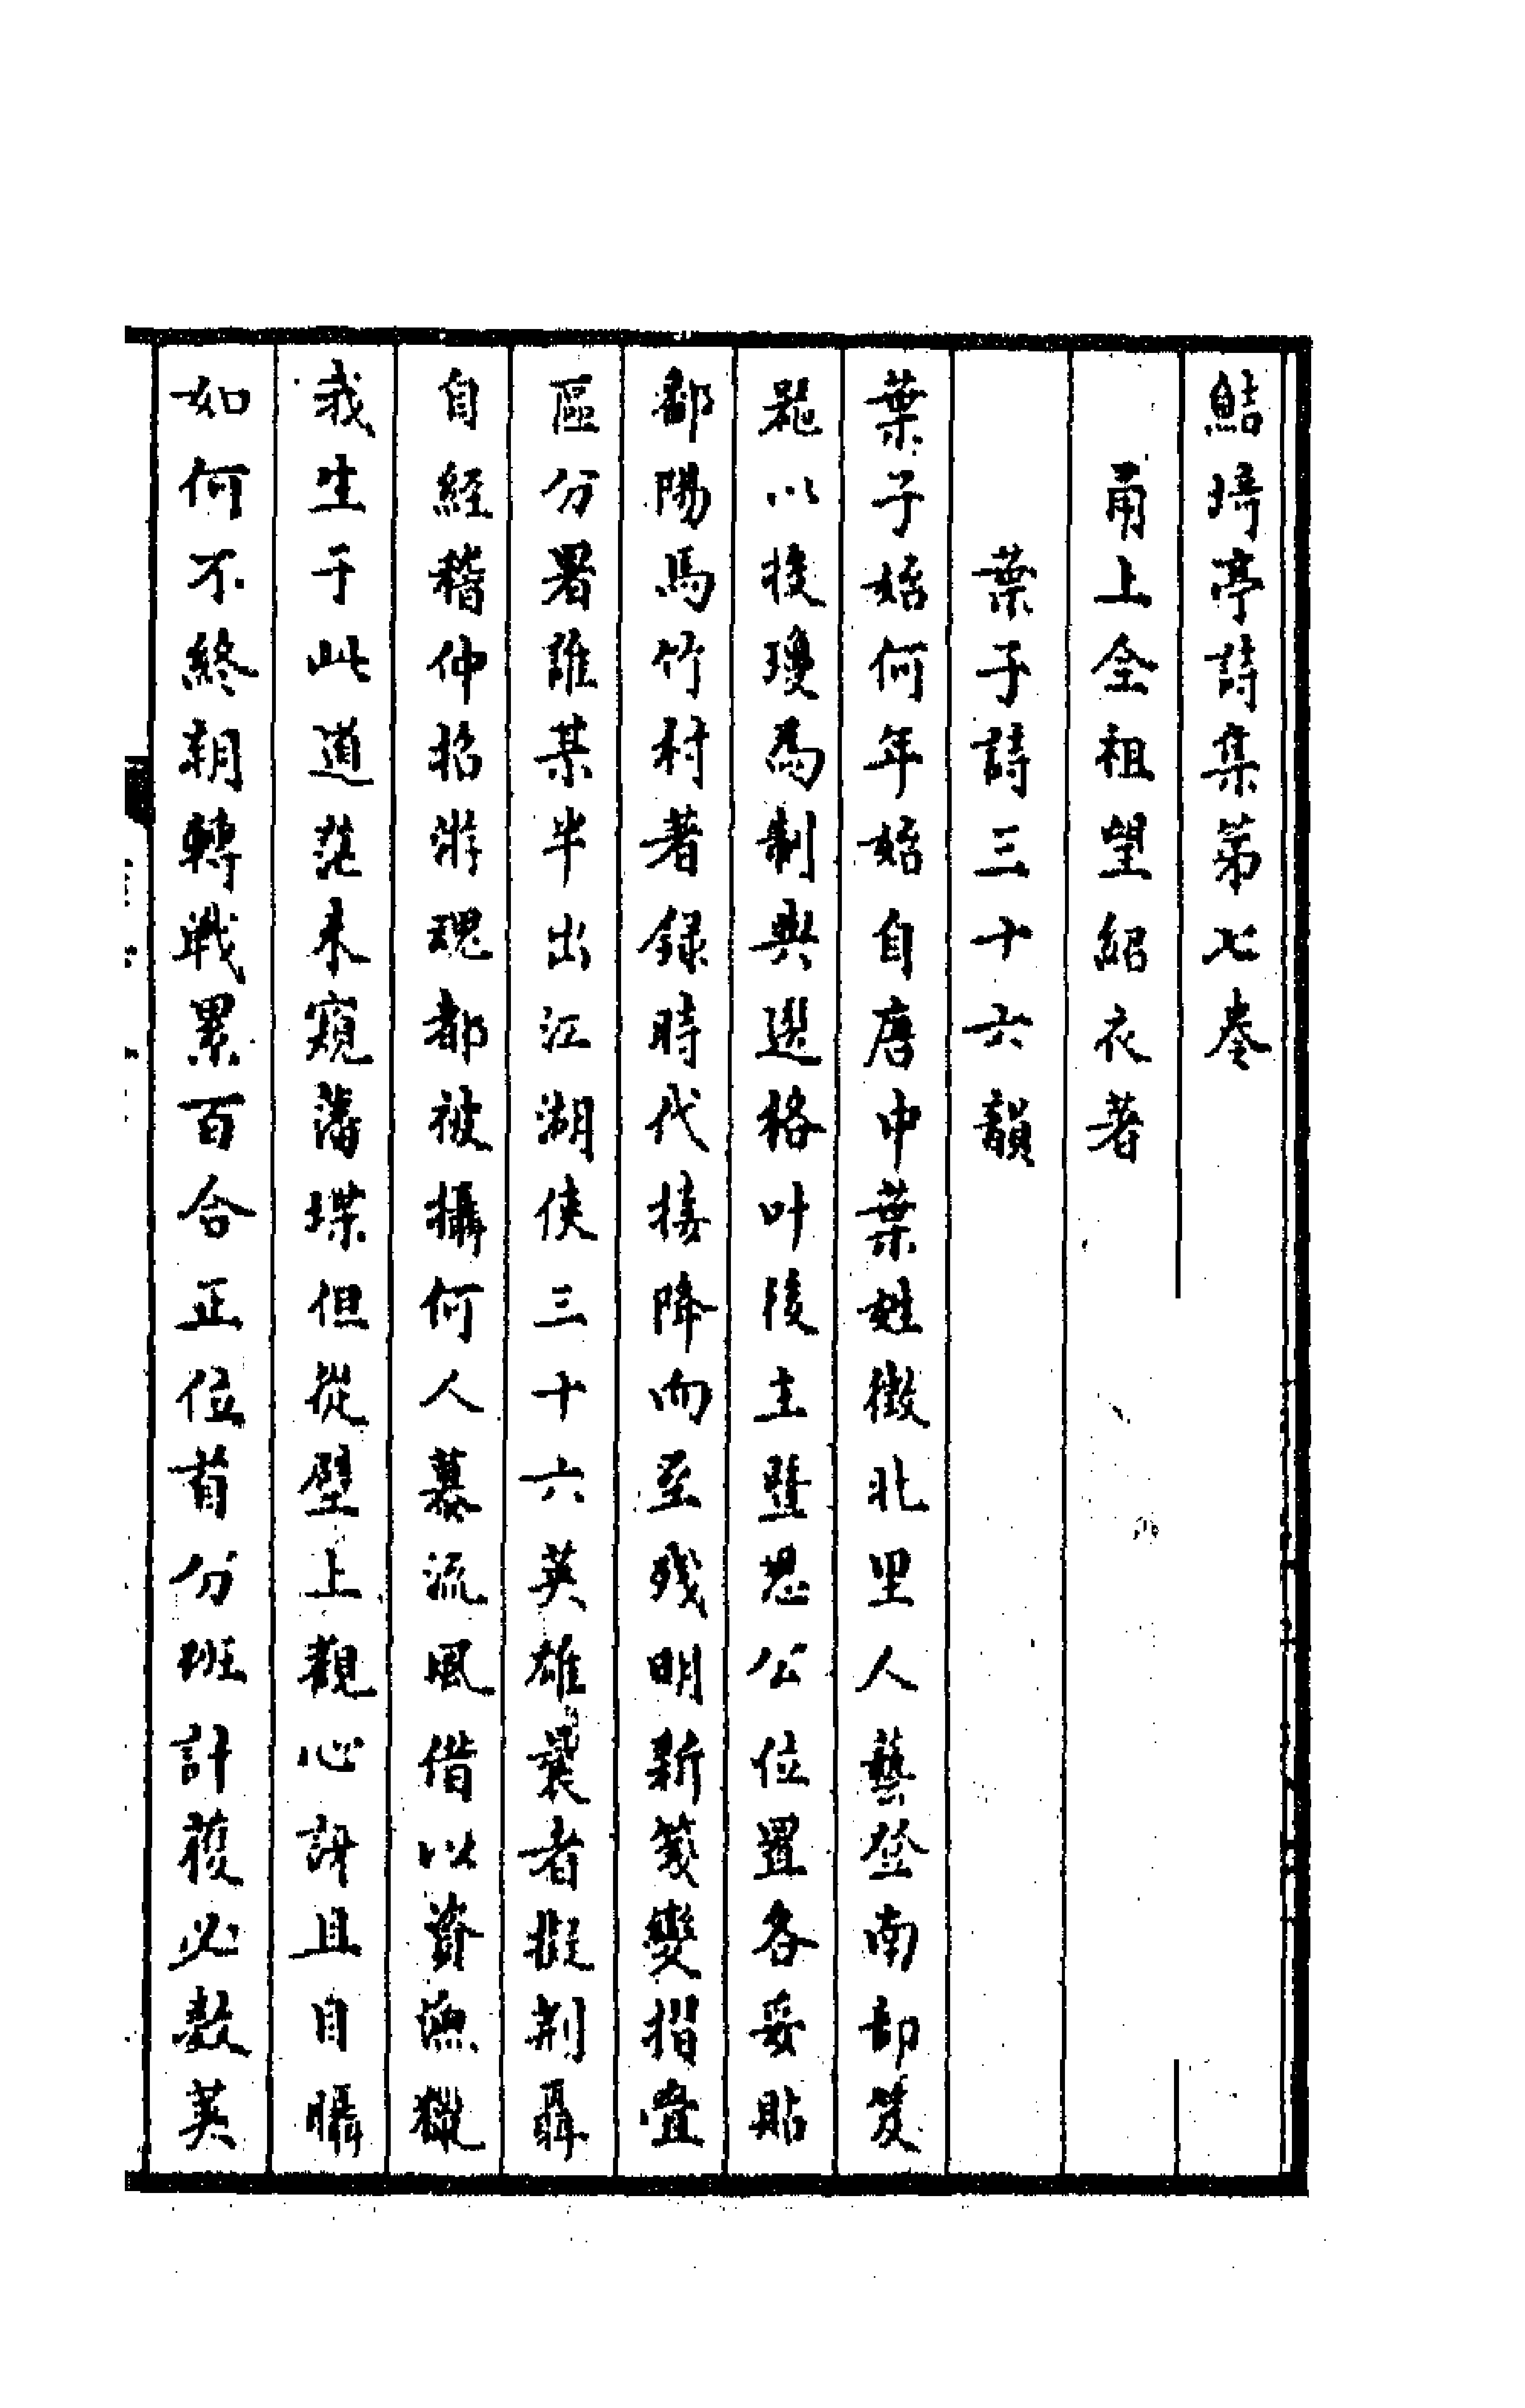 鮚埼亭詩集第七卷
甬上全祖望紹衣著
葉子詩三十六韻
葉子始何年始自唐中葉姓徴北里人藝登南部笈
毹以投瓊爲制與選格叶後主暨思公位置各妥貼
鄱陽馬竹村著録時代接降而至殘明新箋變摺疊
區分署誰某半出江湖侠三十六英雄曩者擬荆聶
自經稽仲招游魂都被攝何人慕流風借以資漁獵
我生于此道茫未窺藩堞但從壁上觀心訝且目䀹
如何不終朝轉戰累百合正位首分班計獲必数英